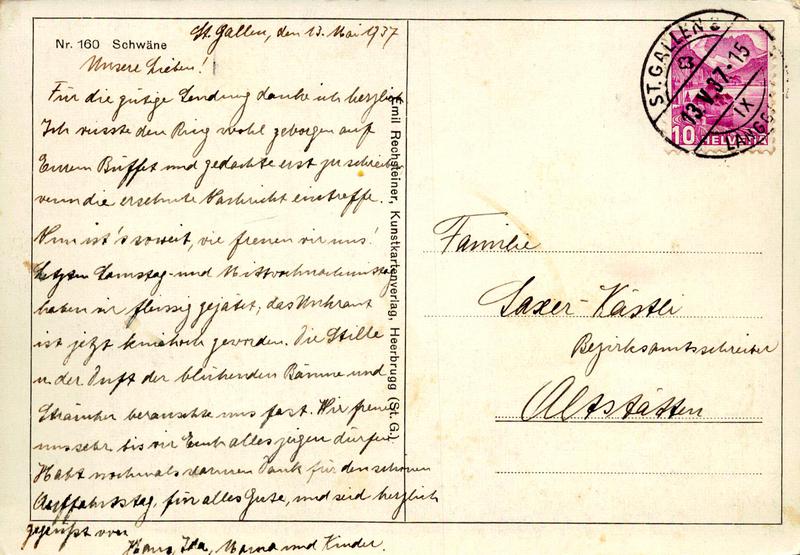 St. Gallen, den 13. Mai 1937
Nr. 160 Schwäne
Unsere Lieben!
Für die gütige Sendung danke ich herzlich.
Ich wusste den Ring wohl geborgen auf
Eurem Buffet und gedachte erst zu schreiben
wenn die ersehnte Nachricht eintreffe.
Nun ist's soweit, wie freuen wir uns!
Letzten Samstag- und Mittwochnachmittag
haben wir fleissig gejätet, das Unkraut
ist jetzt kniehoch geworden. Die Stille
u. der Duft der blühenden Bäume und
Sträucher berauschte uns fast. Wir freuen
uns sehr bis wir Euch alles zeigen dürfen.
Habt nochmals warmen Dank für den schönen
Auffahrtstag, für alles Gute, und seid herzlich
gegrüsst von
Hans, Ida, Mama und Kinder.
Emil Rechsteiner, Kunstkartenverlag, Heerbrugg (St. G.)
ST. GALLEN
13.V.37-15
IX
LANGG
10 HELVETIA
Familie
Saxer-Kästli
Bezirksamtsschreiber
Altstätten